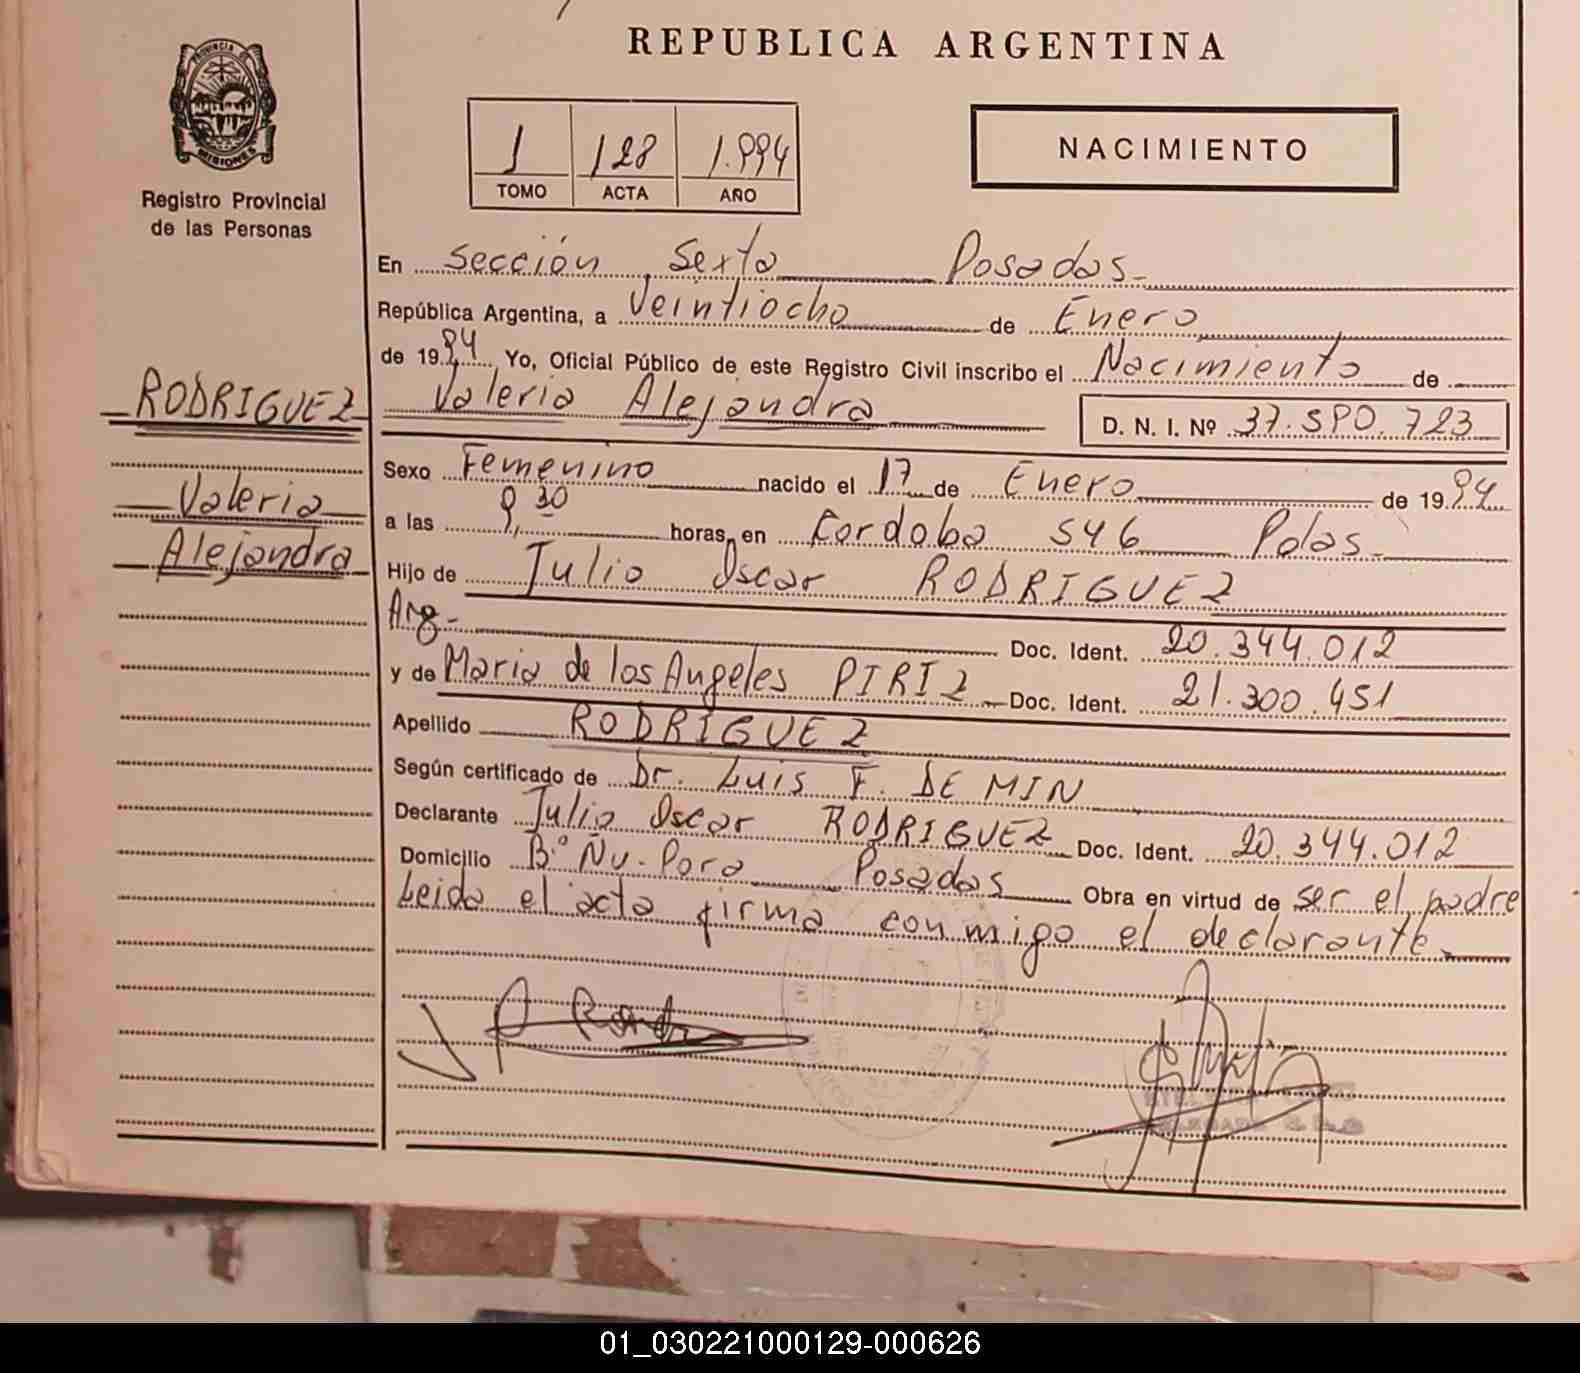 REPUBLICA ARGENTINA
PROVINCIA DE MISIONES
Registro Provincial
de las Personas
1 128 1.994
TOMO ACTA AÑO
NACIMIENTO
En Sección Sexta Posadas
República Argentina, a Veintiocho de Enero
de 1994 Yo, Oficial Público de este Registro Civil inscribo el Nacimiento de
RODRIGUEZ
Valeria
Alejandra
Valeria Alejandra D. N. I. Nº 37.590.723
Sexo Femenino nacido el 17 de Enero de 1994
a las 9,30 horas, en Cordoba 546 Pdas.
Hijo de Julio Oscar RODRIGUEZ
Arg. Doc. Ident. 20.344.012
y de Maria de los Angeles PIRIZ Doc. Ident. 21.300.451
Apellido RODRIGUEZ
Según certificado de Dr. Luis F. DE MIN
Declarante Julio Oscar RODRIGUEZ Doc. Ident. 20.344.012
Domicilio Bº Ñu-Pora Posadas Obra en virtud de ser el padre
Leida el acta firma conmigo el declarante.
01_030221000129-000626